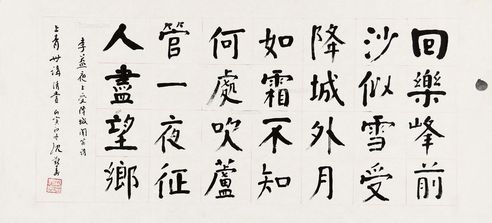 回樂峰前
沙似雪受
降城外月
如霜不知
何處吹蘆
管一夜征
人盡望鄉
李益夜上受降城聞笛詩
上青世講清賞